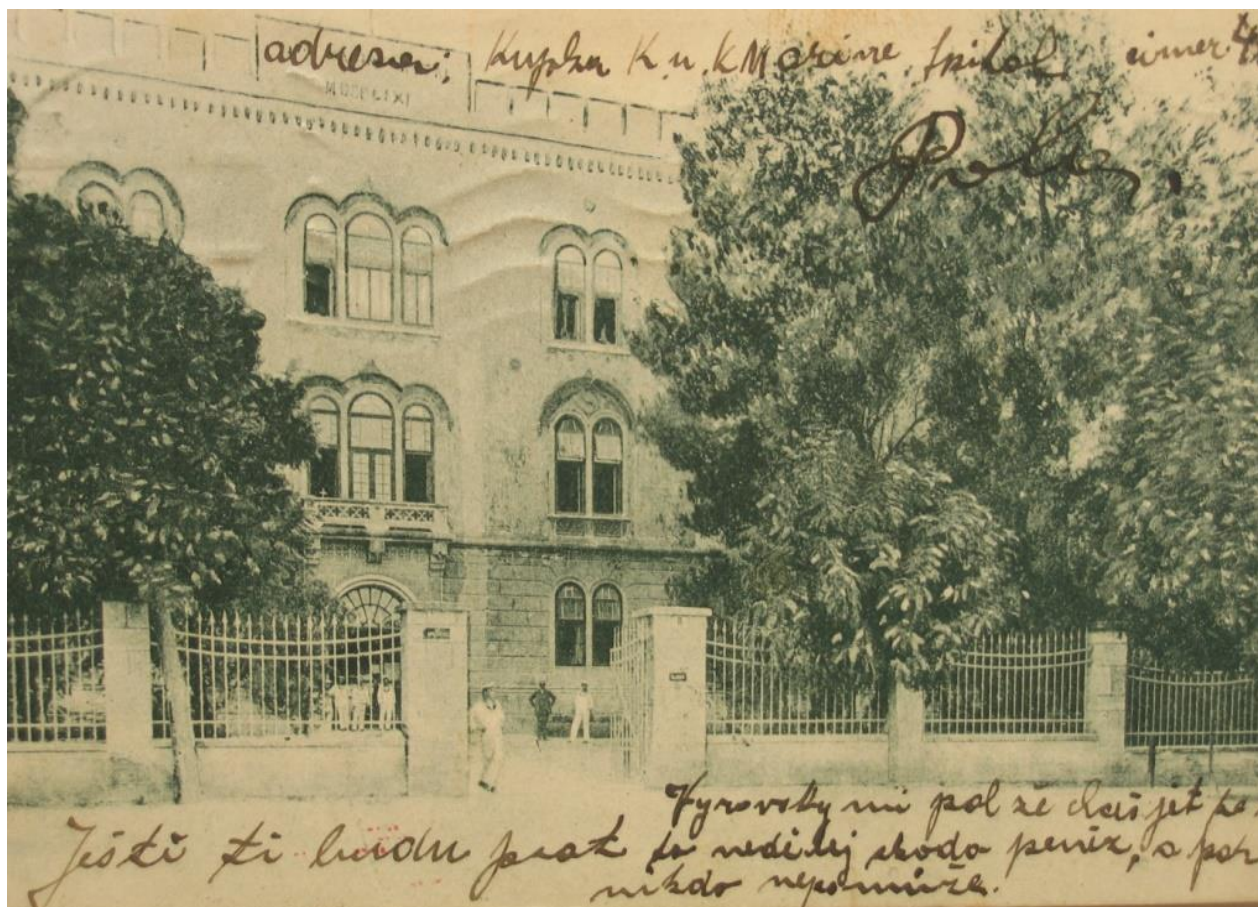 adresa: Kupka K. u. K Marine Spital cimer
Pola.
Vyrovsky mi psal že chceš jet
Ještě ti budu psat to nedělej škoda peněz, a
nikdo nepomůže.